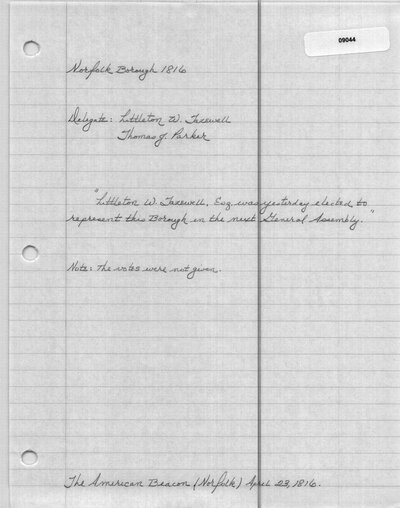 09044
Norfolk Borough 1816
Delegate: Littleton W. Tazewell
Thomas G. Parker
"Littleton W. Tazewell, Esq. was yesterday elected to
represent this Borough in the next General Assembly."
Note: The votes were not given.
The American Beacon (Norfolk) April 23, 1816.